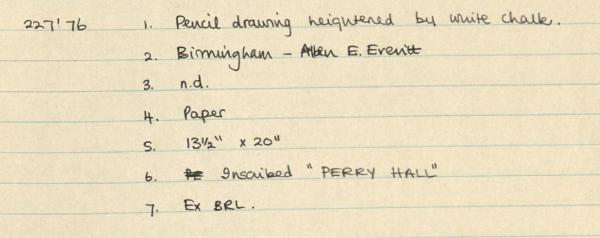 227'76 1. Pencil drawing heightened by white chalk.
2. Birmingham – Allen E. Everitt
3. n.d.
4. Paper
5. 13½" x 20"
6. PE Inscribed "PERRY HALL"
7. Ex BRL.